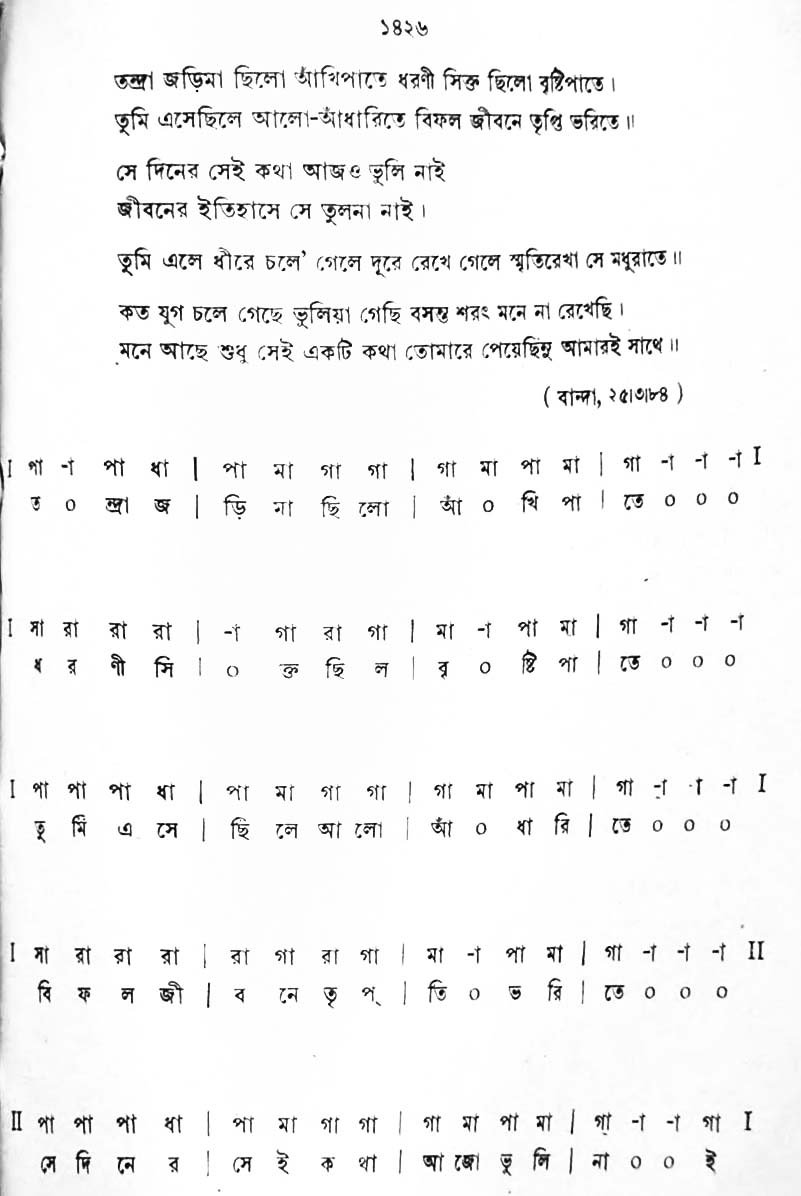 ১৪২৬
তন্দ্রা জড়িমা ছিলো আঁখিপাতে ধরণী সিক্ত ছিলো বৃষ্টিপাতে।
তুমি এসেছিলে আলো-আঁধারিতে বিফল জীবনে তৃপ্তি ভরিতে॥
সে দিনের সেই কথা আজও ভুলি নাই
জীবনের ইতিহাসে সে তুলনা নাই।
তুমি এলে ধীরে চলে' গেলে দূরে রেখে গেলে স্মৃতিরেখা সে মধুরাতে॥
কত যুগ চলে গেছে ভুলিয়া গেছি বসন্ত শরৎ মনে না রেখেছি।
মনে আছে শুধু সেই একটি কথা তোমারে পেয়েছিনু আমারই সাথে॥
( বান্দা, ২৫।৩।৮৪ )
I পা -া পা ধা | পা মা গা গা | গা মা পা মা | গা -া -া -া I
ত ০ ন্দ্রা জ | ড়ি মা ছি লো | আঁ ০ খি পা | তে ০ ০ ০
I সা রা রা রা | -া গা রা গা | মা -া পা মা | গা -া -া -া
ধ র ণী সি | ০ ক্ত ছি ল | বৃ ০ ষ্টি পা | তে ০ ০ ০
I পা পা পা ধা | পা মা গা গা | গা মা পা মা | গা -া -া -া I
তু মি এ সে | ছি লে আ লো | আঁ ০ ধা রি | তে ০ ০ ০
I সা রা রা রা | রা গা রা গা | মা -া পা মা | গা -া -া -া II
বি ফ ল জী | ব নে তৃ প্ | তি ০ ভ রি | তে ০ ০ ০
II পা পা পা ধা | পা মা গা গা | গা মা পা মা | গা -া -া গা I
সে দি নে র | সে ই ক থা | আ জো ভু লি | না ০ ০ ই